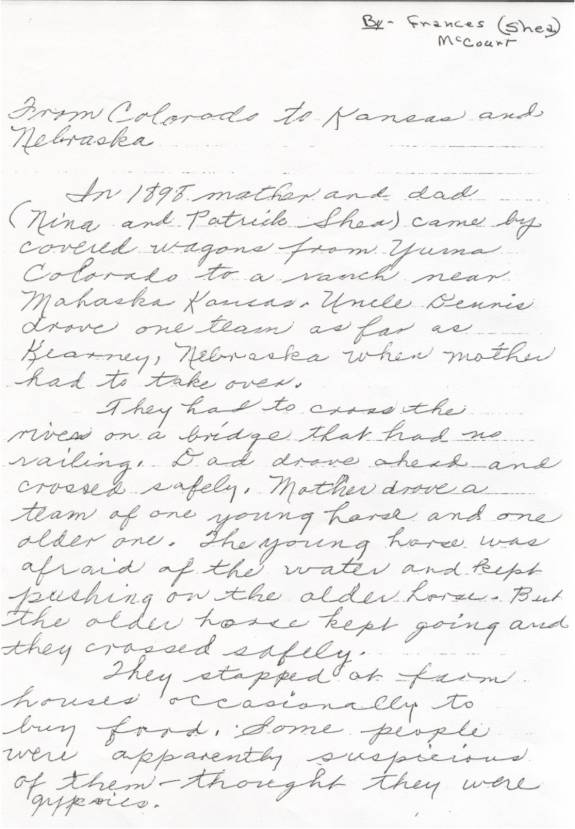 By- Frances (Shea)
McCourt
From Colorado to Kansas and
Nebraska
In 1898 mother and dad
(Nina and Patrick Shea) came by
covered wagons from Yuma
Colorado to a ranch near
Mahaska Kansas. Uncle Dennis
drove one team as far as
Kearney, Nebraska when mother
had to take over.
They had to cross the
river on a bridge that had no
railing. Dad drove ahead and
crossed safely. Mother drove a
team of one young horse and one
older one. The young horse was
afraid of the water and kept
pushing on the older horse. But
the older horse kept going and
they crossed safely.
They stopped at farm
houses occasionally to
buy food. Some people
were apparently suspicious
of them - thought they were
gypsies.